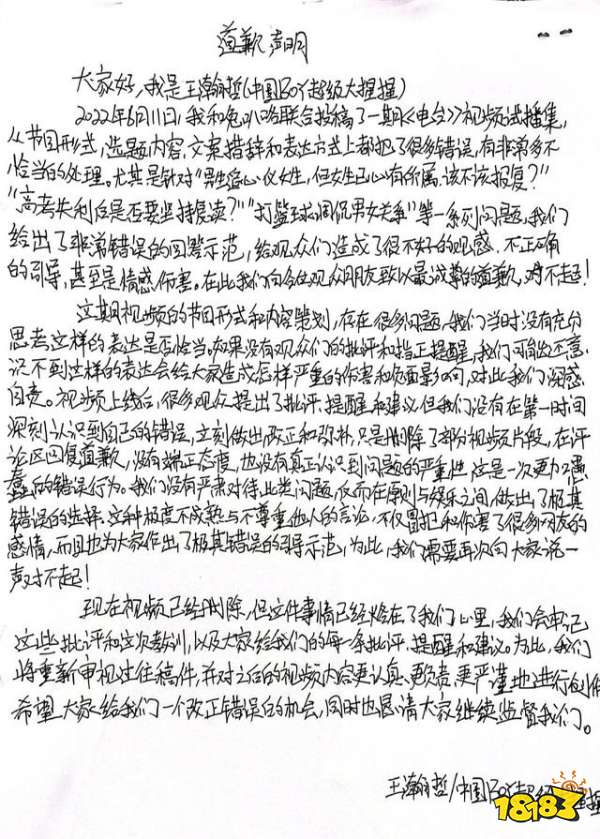 道歉声明
大家好，我是王瀚哲(中国BOY超级大猩猩)
2022年6月11日，我和兔叭咯联合投稿了一期《电台》视频试播集，
从节目形式，选题内容，文案措辞和表达方式上都犯了很多错误，有非常多不
恰当的处理。尤其是针对“男生宿心仪女生，但女生已心有所属，该不该报复？”
“高考失利后是否要坚持复读？”“打篮球调侃男女关系”等一系列问题，我们
给出了非常错误的回答示范，给观众们造成了很不好的观感、不正确
的引导，甚至是情感伤害。在此我们向各位观众朋友致以最诚挚的道歉，对不起！
这期视频的节目形式和内容策划，存在很多问题，我们当时没有充分
思考这样的表达是否恰当，如果没有观众们的批评和指正提醒，我们可能还意
识不到这样的表达会给大家造成怎样严重的伤害和负面影响，对此我们深感
自责。视频上线后，很多观众提出了批评、提醒和建议，但我们没有在第一时间
深刻认识到自己的错误，立刻做出改正和弥补，只是删除了部分视频片段，在评
论区回复道歉，没有端正态度，也没有真正认识到问题的严重性，这是一次更加愚
蠢的错误行为。我们没有严肃对待此类问题，反而在原则与娱乐之间，做出了极其
错误的选择。这种极度不成熟与不尊重他人的言论，不仅冒犯和伤害了很多朋友的
感情，而且也为大家作出了极其错误的引导示范，为此，我们需要再次向大家说一
声对不起！
现在视频已经删除，但这件事情已经烙在了我们心里，我们会牢记
这些批评和这次教训，以及大家给我们的每一条批评、提醒和建议。为此，我们
将重新审视过往稿件，并对之后的视频内容更认真、更负责、更严谨地进行创作
希望大家给我们一个改正错误的机会，同时也恳请大家继续监督我们。
王瀚哲/中国BOY超级
18183